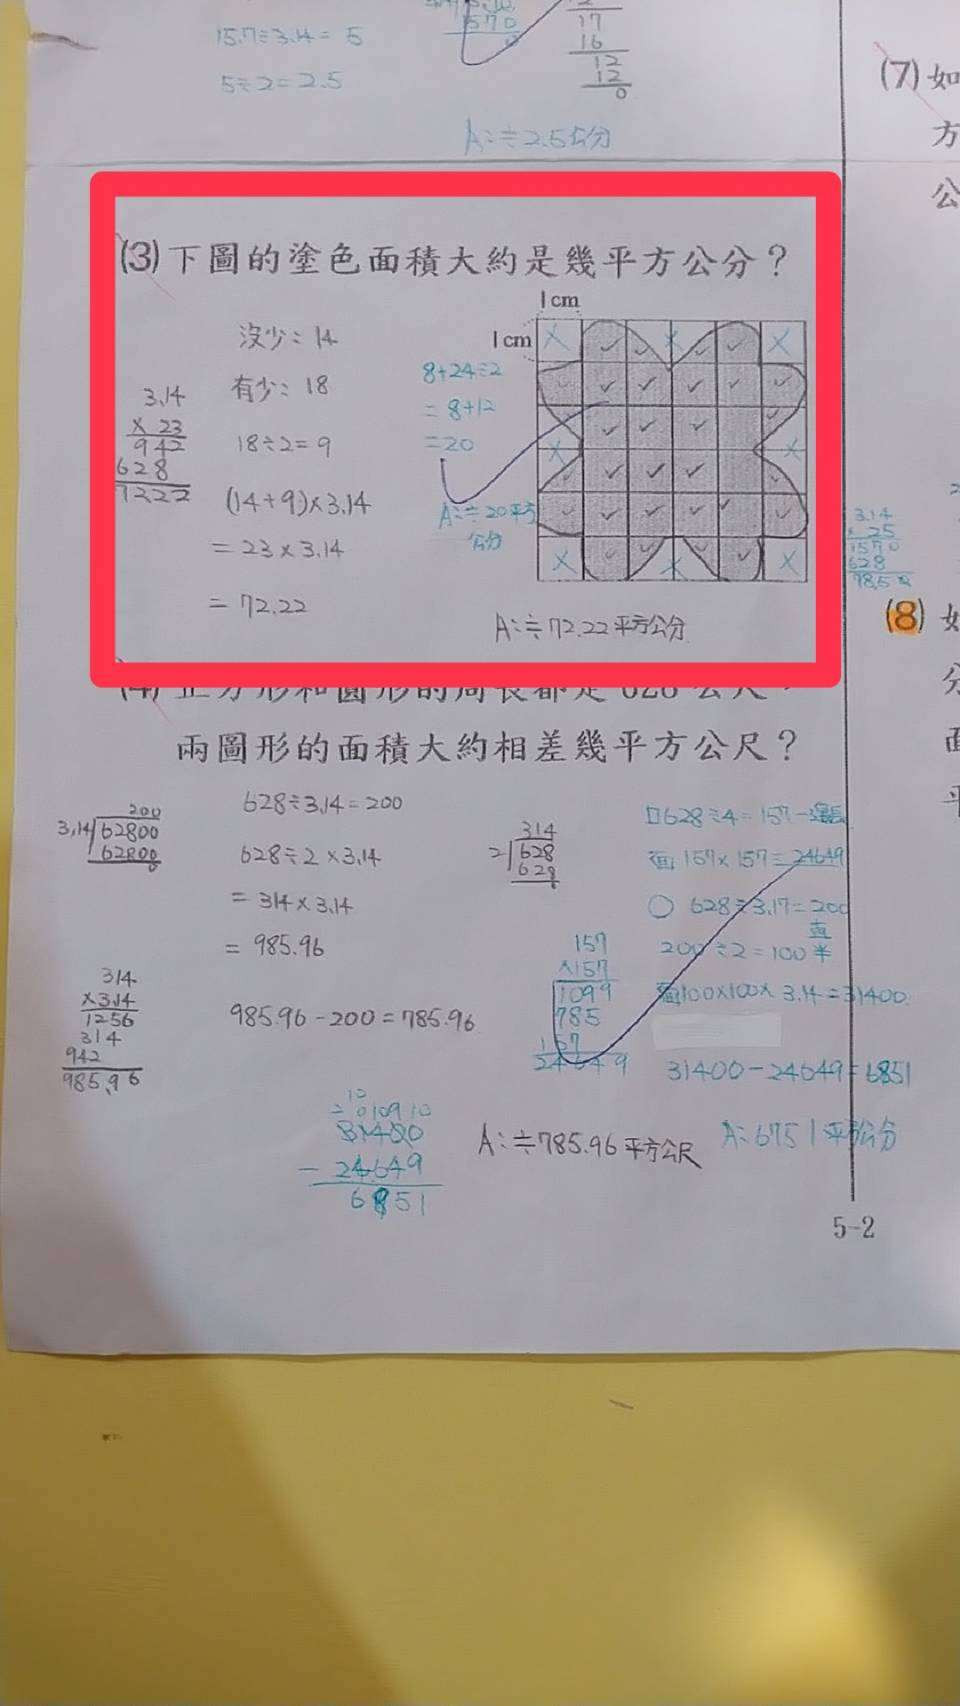 15.7÷3.14= 5
5÷2=2.5
1570
0
17
16
12
12
0
A:≒2.5公分
(7)如
方
公
(3)下圖的塗色面積大約是幾平方公分?
1cm
1cm
沒少:14
有少:18
18÷2=9
(14+9)×3.14
=23×3.14
=72.22
3.14
×23
942
628
7222
8+24÷2
=8+12
=20
A:≒20平方
公分
A:≒72.22平方公分
3.14
25
1570
628
(8)如
分
面
平
兩圖形的面積大約相差幾平方公尺?
200
3.14 62800
62800
0
628÷3.14=200
628÷2×3.14
=314×3.14
=985.96
314
2 628
628
口628÷4=157
面157×157=24649
○ 628÷3.17=200
直
200÷2=100半
面100×100×3.14=31400
314
×3.14
1256
314
942
985.96
985.96-200=785.96
157
×157
1099
785
157
24649
31400-24649=6851
- 24649
6851
A:≒785.96平方公尺
A:6751平方公分
5-2